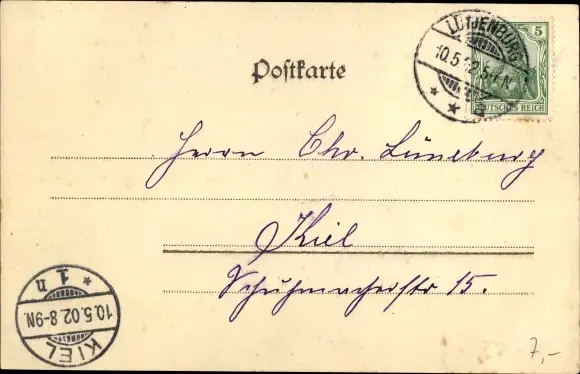 LÜTJENBURG
10.5.02.5-7N
5
DEUTSCHES REICH
Postkarte
Herrn Chr. Lüneburg
Kiel
Schuhmacherstr 15.
KIEL
10.5.02.8-9N.
* 1 n
7,-